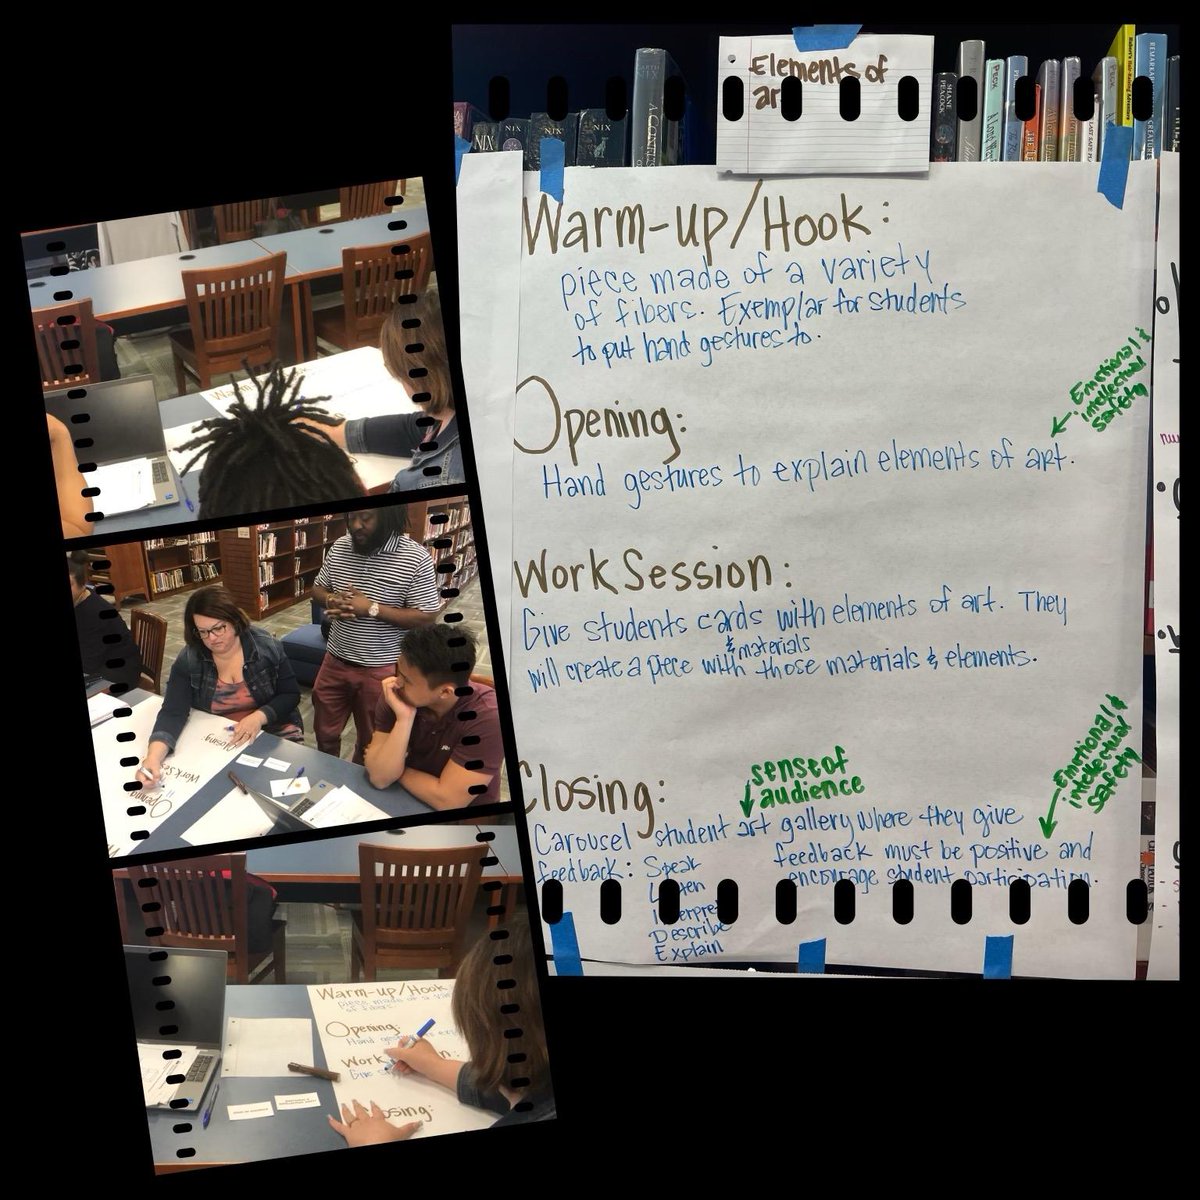 Elements of
art
Warm-up/Hook:
piece made of a variety
of fibers. Exemplar for students
to put hand gestures to.
Opening:
Emotional &
intellectual
safety
Hand gestures to explain elements of art.
Work Session:
Give students cards with elements of art. They
& materials
will create a piece with those materials & elements.
Closing:
sense of
audience
Emotional &
intellectual
safety
Carousel student art gallery where they give
feedback: Speak
Listen
Interpret
Describe
Explain
feedback must be positive and
encourage student participation.
NIX
NIX
NIX
NIX
SHANE PEACOCK
PECK
Warm
Closing:
Work Sess
Opening
Warm-up/Hook
piece made of a var
of fibers.
Opening:
Hand gestures
Work
Give